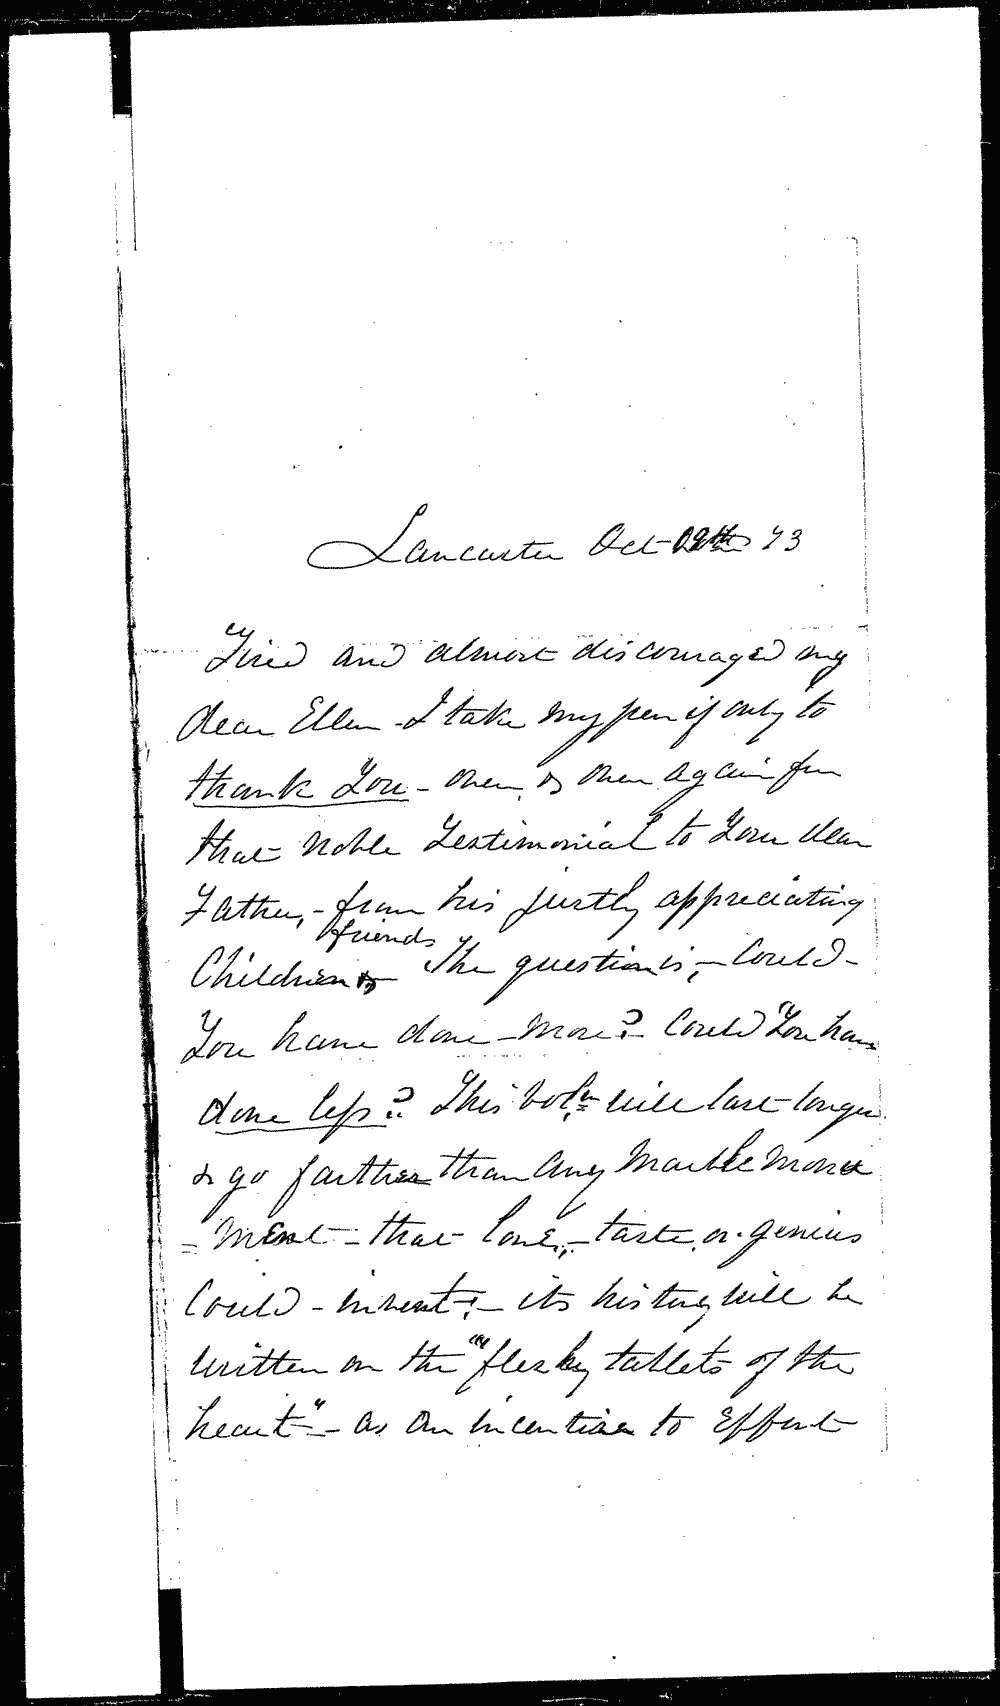 Lancaster Oct 73
Tired and almost discouraged my
dear Ellen - I take my pen if only to
thank You - over & over again for
that noble Testimonial to Your dear
Father, - from his justly appreciating
friends
Children & The question is, - Could -
You have done - more? - Could You have
done less? This vol.m will last longer
& go farther than any Marble monu
= ment - that love, - taste, or genius
Could - invent; - its history will be
written on the "fleshy tablets of the
heart" - as an incentive to Effort